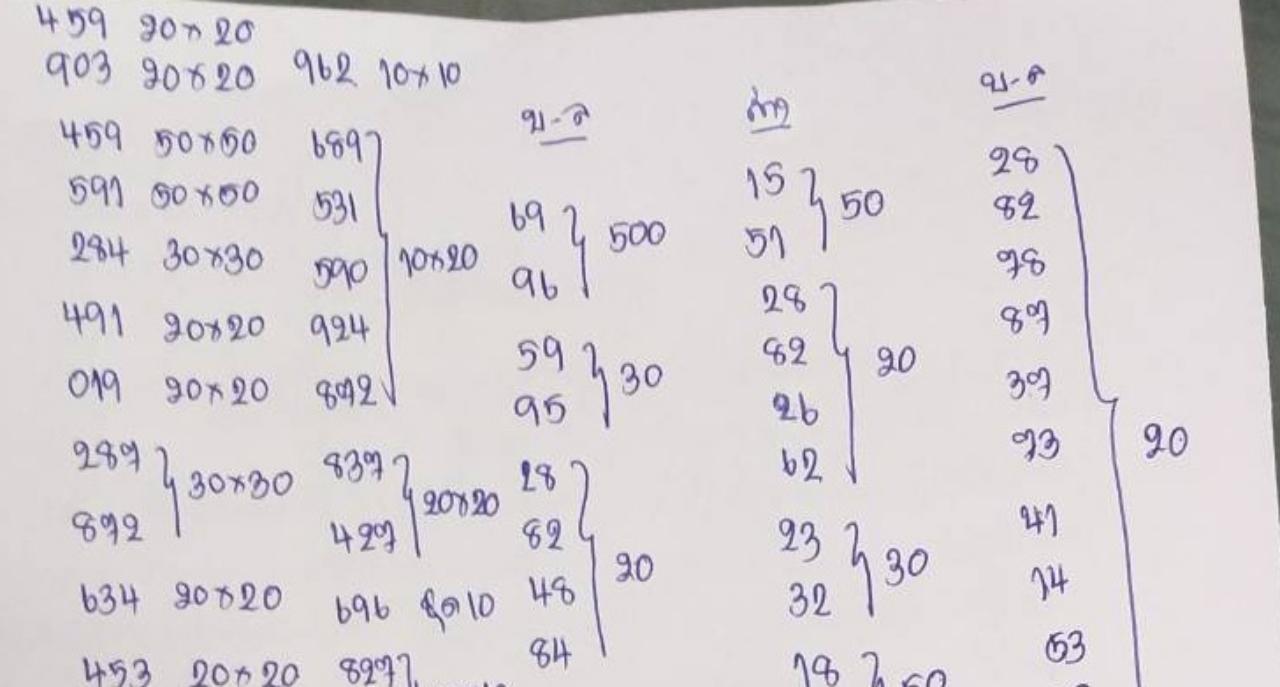 459 20×20
903 20×20 962 10×10
459 50×50 689
591 50×50 531
284 30×30 590 10×20
491 20×20 924
019 20×20 872
287 837
872 30×30 427 20×20
634 20×20 696 ชุด 10
453 20×20 827
บ-ล
69
96 500
59
95 30
28
82
48
84 20
ล่าง
15
51 50
28
82
26
62 20
23
32 30
18 50
บ-ล
28
82
78
87
37
73 20
41
14
53